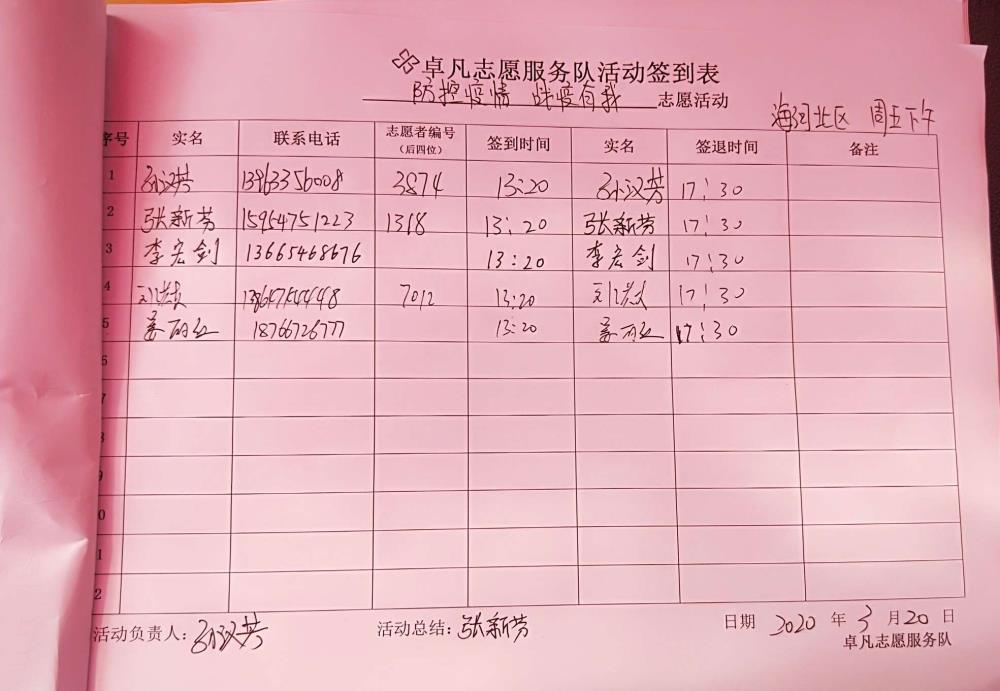 卓凡志愿服务队活动签到表
防控疫情 战疫有我 志愿活动
海河北区 周五下午
序号 实名 联系电话 志愿者编号（后四位） 签到时间 实名 签退时间 备注
1 孙汉芳 13963356008 3874 13:20 孙汉芳 17:30
2 张新芳 15954751223 1318 13:20 张新芳 17:30
3 李宏剑 13665468676 13:20 李宏剑 17:30
4 7012 13:20 17:30
5 姜丽红 18766726777 13:20 姜丽红 17:30
6
7
8
9
0
1
2
活动负责人：孙汉芳 活动总结：张新芳 日期 2020 年 3 月 20 日
卓凡志愿服务队